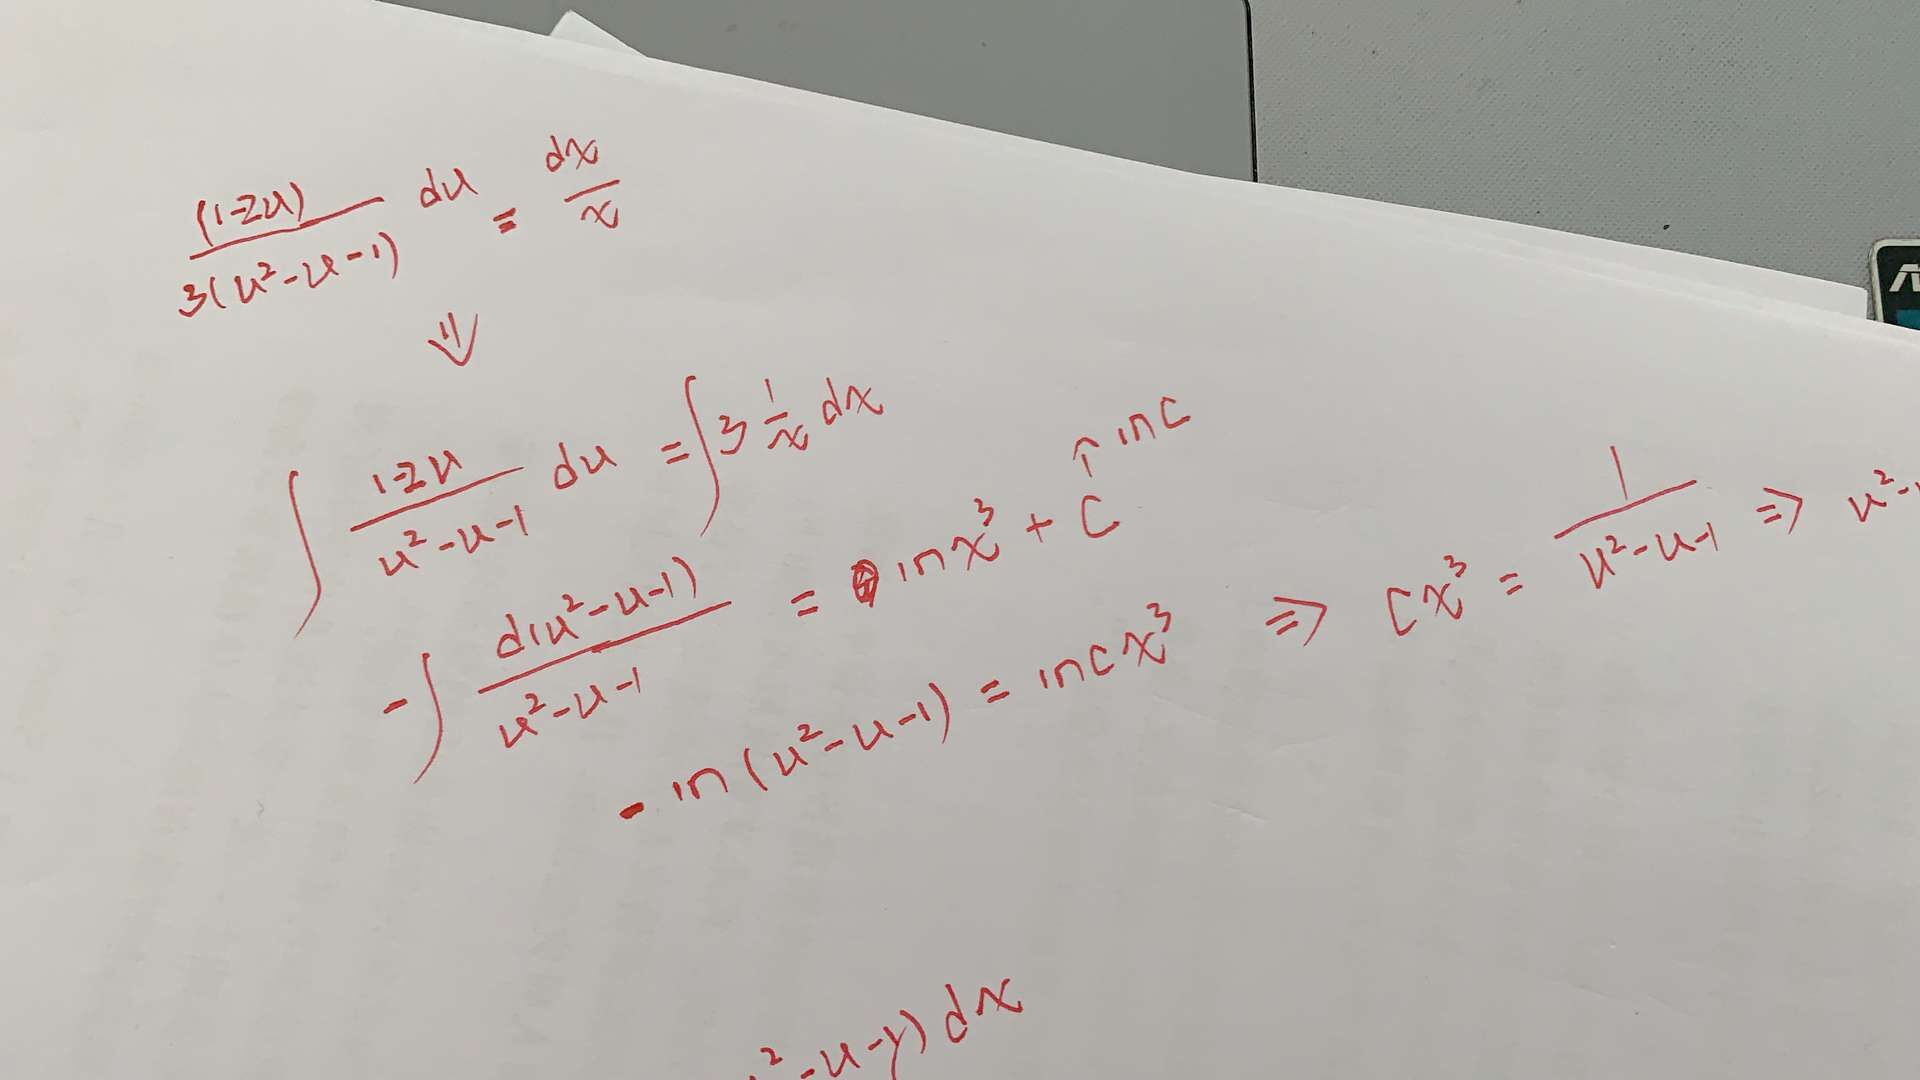 (1-2u)/3(u²-u-1) du = dx/x
⇓
∫ 1-2u/u²-u-1 du = ∫ 3 1/x dx
-∫ d(u²-u-1)/u²-u-1 = lnx³ + C ↑ lnC
-ln(u²-u-1) = lncx³ ⇒ Cx³ = 1/u²-u-1 ⇒ u²-
²-u-y) dx